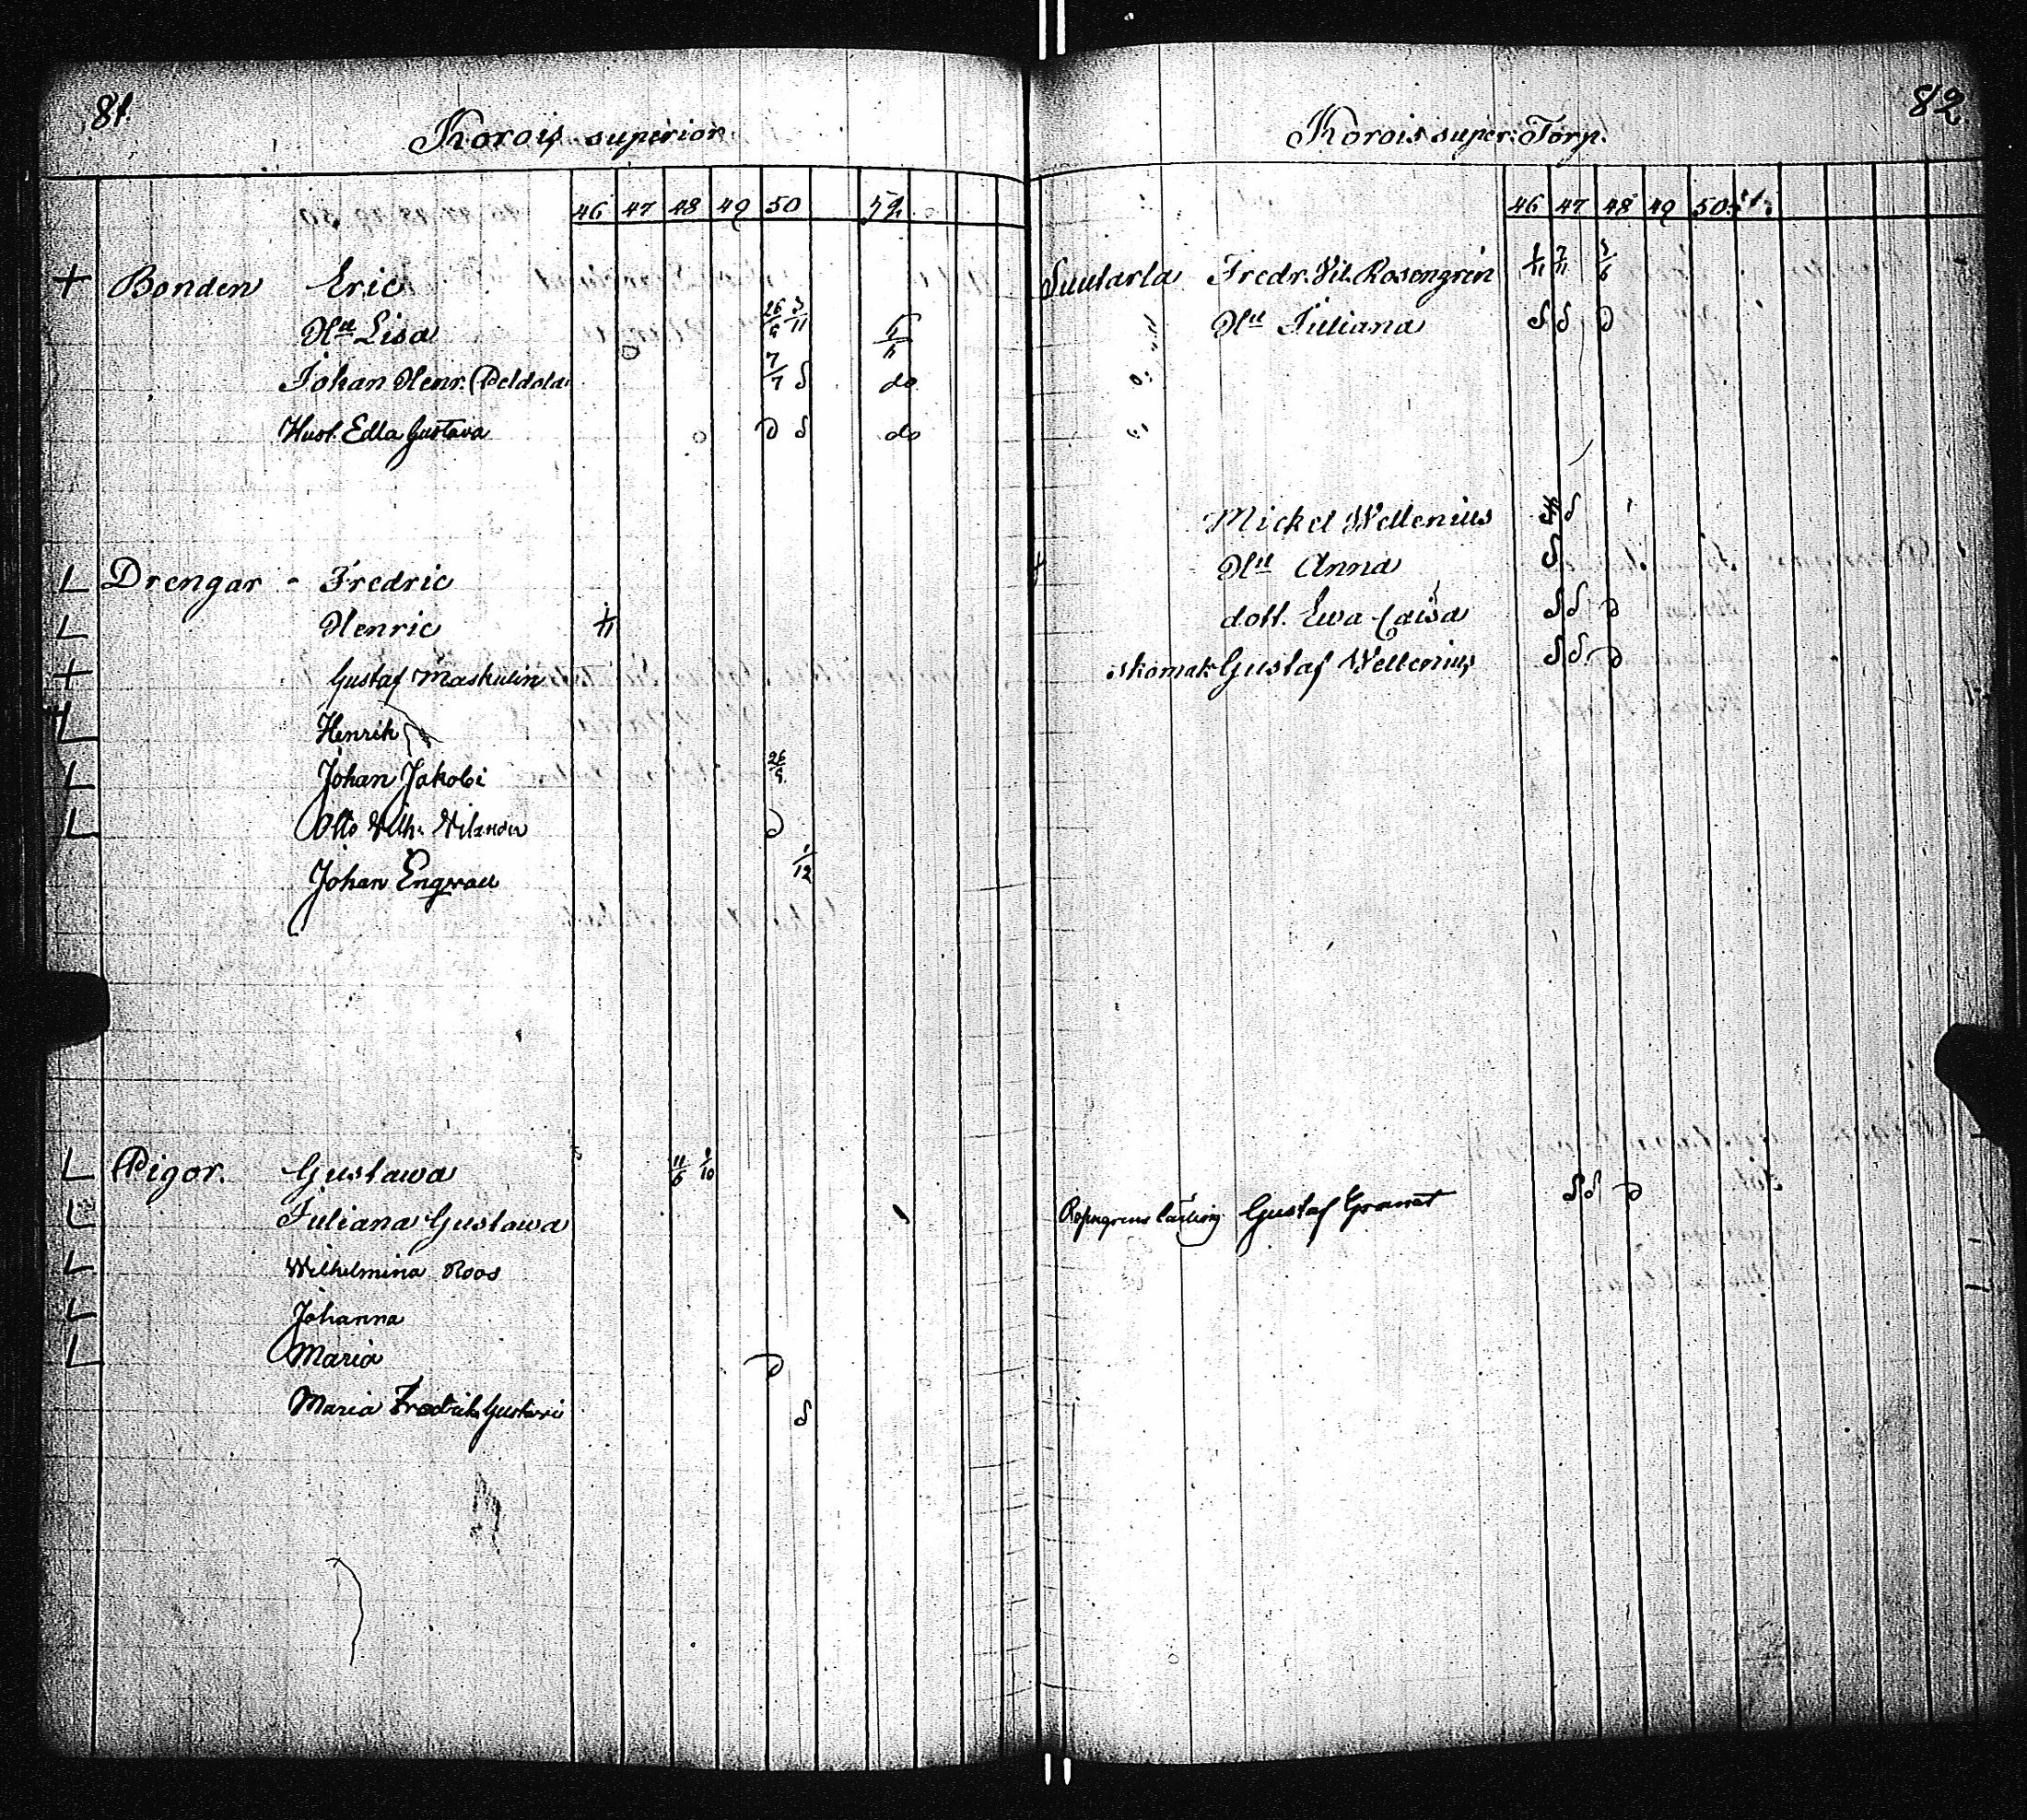 81.
Korois superior.
46 47 48 49 50 52
+ Bonden Eric
Hu Lisa 26/9 3/11
Johan Henr. Peldola 7/7 do
Hust. Edla Gustava do
L Drengar - Fredric
L Henric 1/11
+ Gustaf Maskulin
L Henrik
L Johan Jakobi 26/9
L Otto Wilh. Wilander
Johan Engvall 1/12
L Pigor. Gustawa 11/6 /10
L Juliana Gustawa
L Wilhelmina Roos
L Johanna
L Maria
Maria Fredrika Gustavi
82
Korois super: Torp.
46 47 48 49 50 51
Suutarla Fredr. Vil. Rosengren 1/11 7/11 /6
Hu Juliana
Mickel Wellenius
+ Hu Anna
dott. Ewa Caisa
skomak Gustaf Wellenius
Rosengrens lärling Gustaf Granat